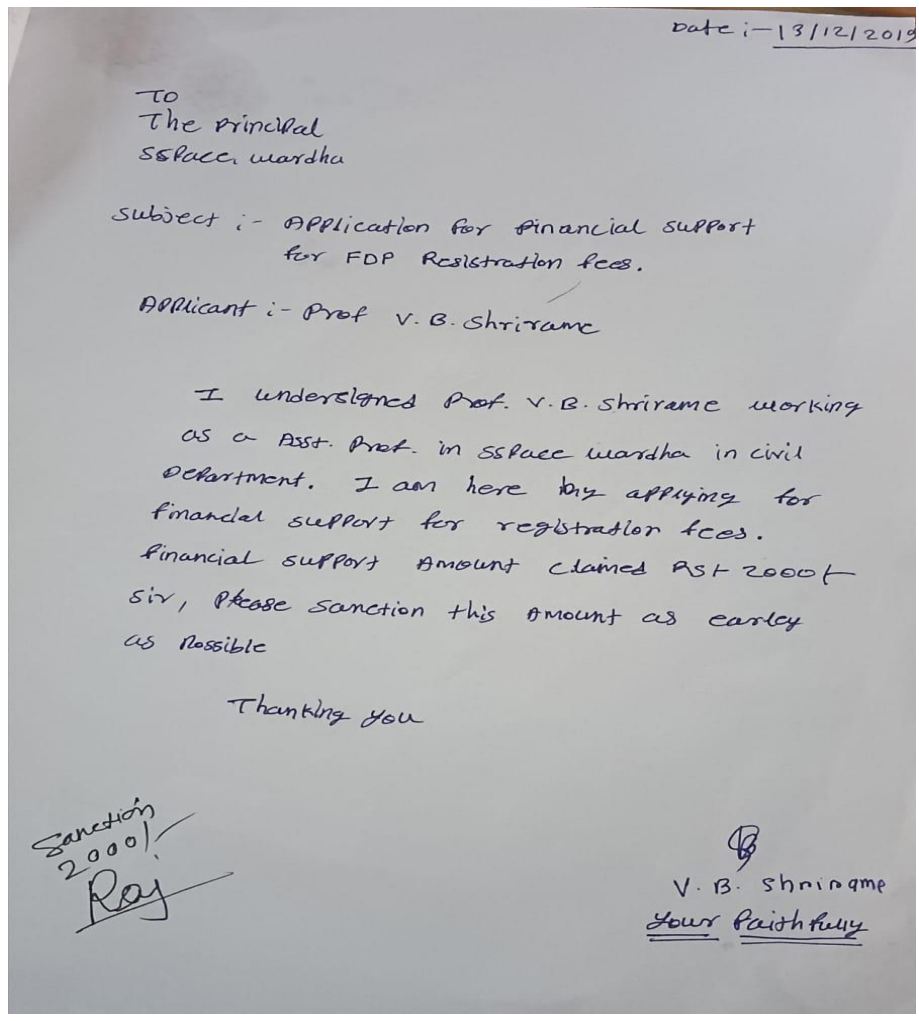 Date :- 13/12/2019
To
The principal
SSPACE, wardha
Subject :- Application for financial support
for FDP Registration fees.
Applicant :- Prof V. B. Shrirame
I undersigned Prof. V. B. Shrirame working
as a Asst. Prof. in SSPACE wardha in civil
Department. I am here by applying for
financial support for registration fees.
financial support Amount claimed RS/- 2000/-
sir, Please sanction this Amount as earley
as Possible
Thanking you
Sanction
2000/-
Raj
V. B. Shrirame
Your faithfully